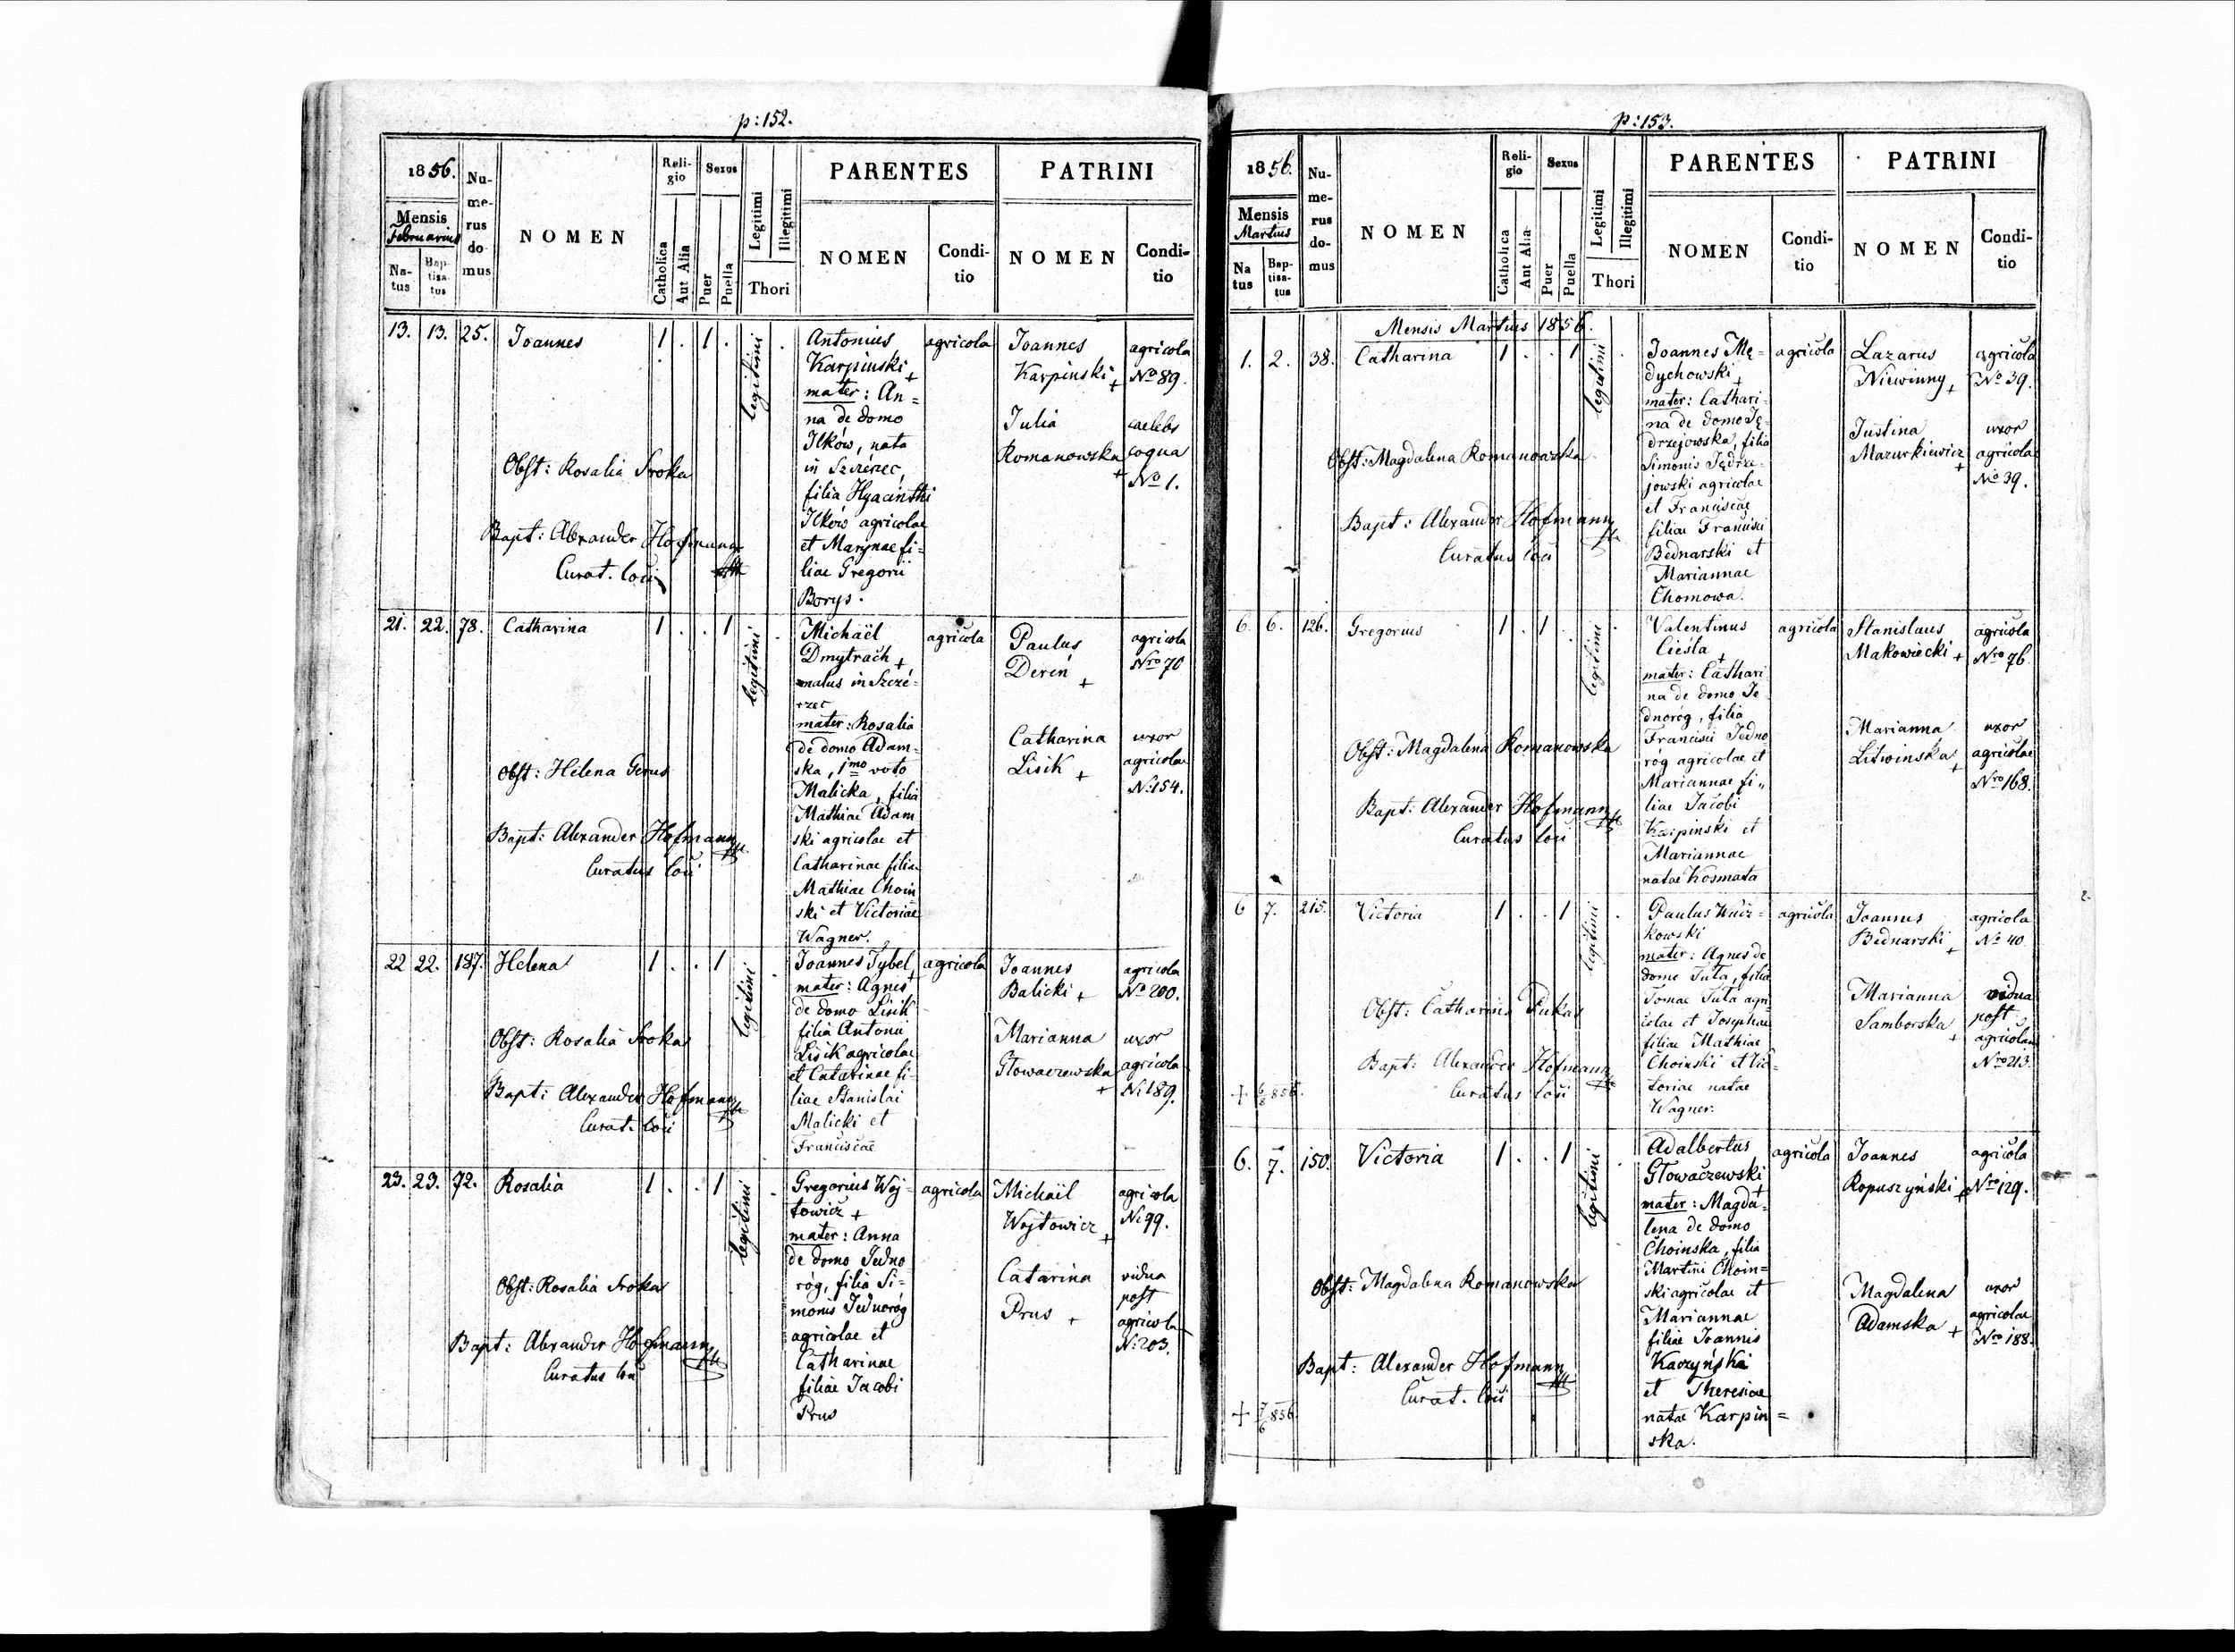 p: 152.
1856.
Mensis
Februarius
Na-
tus
Bap-
tisa-
tus
Nu-
me-
rus
do-
mus
NOMEN
Reli-
gio
Catholica
Aut Alia
Sexus
Puer
Puella
Legitimi
Illegitimi
Thori
PARENTES
NOMEN
Condi-
tio
PATRINI
NOMEN
Condi-
tio
13. 13. 25. Joannes 1 . 1 .
legitimi
Obst: Rosalia Sroka
Bapt: Alexander Hofmann
Curat. loci
Antonius
Karpinski +
mater: An=
na de domo
Ilków, nata
in Szczérzec,
filia Hyacinthi
Ilków agricolae
et Marynae fi=
liae Gregorii
Borys.
agricola
Joannes
Karpinski +
agricola
No 89.
Julia
Romanowska +
caelebs
coqua
No 1.
21. 22. 78. Catharina 1 . . 1
legitimi
Obst: Helena Gerus
Bapt: Alexander Hofmann
Curatus loci
Michaël
Dmytrach +
natus in Szczé=
rzec
mater: Rosalia
de domo Adam=
ska, 1mo voto
Malicka, filia
Mathiae Adam
ski agricolae et
Catharinae filiae
Mathiae Choin
ski et Victoriae
Wagner.
agricola
Paulus
Dereń +
agricola
Nro 70
Catharina
Lisik +
uxor
agricolae
N: 154.
22 22. 187. Helena 1 . . 1
legitimi
Obst: Rosalia Sroka
Bapt: Alexander Hofmann
Curat. loci
Joannes Tybel +
mater: Agnes
de domo Lisik
filia Antonii
Lisik agricolae
et Catarinae fi-
liae Stanislai
Malicki et
Franciscae
agricola
Joannes
Balicki +
agricola
No 200.
Marianna
Głowaczewska +
uxor
agricola
N: 189.
23. 23. 72. Rosalia 1 . . 1
legitimi
Obst: Rosalia Sroka
Bapt: Alexander Hofmann
Curatus loci
Gregorius Woj=
towicz +
mater: Anna
de domo Jedno
róg, filia Si=
monis Jednoróg
agricolae et
Catharinae
filiae Jacobi
Prus
agricola
Michaël
Wojtowicz +
agricola
N: 99.
Catarina
Prus +
vidua
post
agricola
N: 203.
p: 153.
1856.
Mensis
Martius
Na
tus
Bap-
tisa-
tus
Nu-
me-
rus
do-
mus
NOMEN
Reli-
gio
Catholica
Aut Alia
Sexus
Puer
Puella
Legitimi
Illegitimi
Thori
PARENTES
NOMEN
Condi-
tio
PATRINI
NOMEN
Condi-
tio
Mensis Martius 1856.
1. 2. 38. Catharina 1 . . 1
legitimi
Obst: Magdalena Romanowska
Bapt: Alexander Hofmann
Curatus loci
Joannes Mę=
dychowski +
mater: Cathari=
na de domo Ję=
drzejowska, filia
Simonis Jędrze=
jowski agricolae
et Franciscae
filiae Francisci
Bednarski et
Mariannae
Chomowa.
agricola
Lazarus
Niewinny +
agricola
No 39.
Justina
Mazurkiewicz +
uxor
agricolae
No 39.
6. 6. 126. Gregorius 1 . 1 .
legitimi
Obst: Magdalena Romanowska
Bapt: Alexander Hofmann
Curatus loci
Valentinus
Ciesla +
mater: Cathari
na de domo Je
dnoróg, filia
Francisci Jedno
róg agricolae et
Mariannae fi„
liae Jacobi
Karpinski et
Mariannae
natae Kosmata
agricola
Stanislaus
Makowiecki +
agricola
Nro 76.
Marianna
Litwinska +
uxor
agricolae
Nro 168.
6 7. 215. Victoria 1 . . 1
legitimi
Obst: Catharina Pukas
Bapt: Alexander Hofmann
Curatus loci
+ 6/8 856.
Paulus Wucz=
kowski
mater: Agnes de
domo Juta, filia
Tomae Juta agri
colae et Josephae
filiae Mathiae
Choinski et Vic=
toriae natae
Wagner.
agricola
Joannes
Bednarski +
agricola
No 40
Marianna
Samborska +
vidua
post
agricolam
Nro 213.
6. 7. 150. Victoria 1 . . 1
legitimi
Obst: Magdalena Romanowska
Bapt: Alexander Hofmann
Curat. loci
+ 7/6 856.
Adalbertus
Głowaczewski +
mater: Magda=
lena de domo
Choinska, filia
Martini Choin=
ski agricolae et
Mariannae
filiae Joannis
Kaczyński
et Theresiae
natae Karpin=
ska.
agricola
Joannes
Ropuszyński +
agricola
Nro 129.
Magdalena
Adamska +
uxor
agricolae
Nro 188.